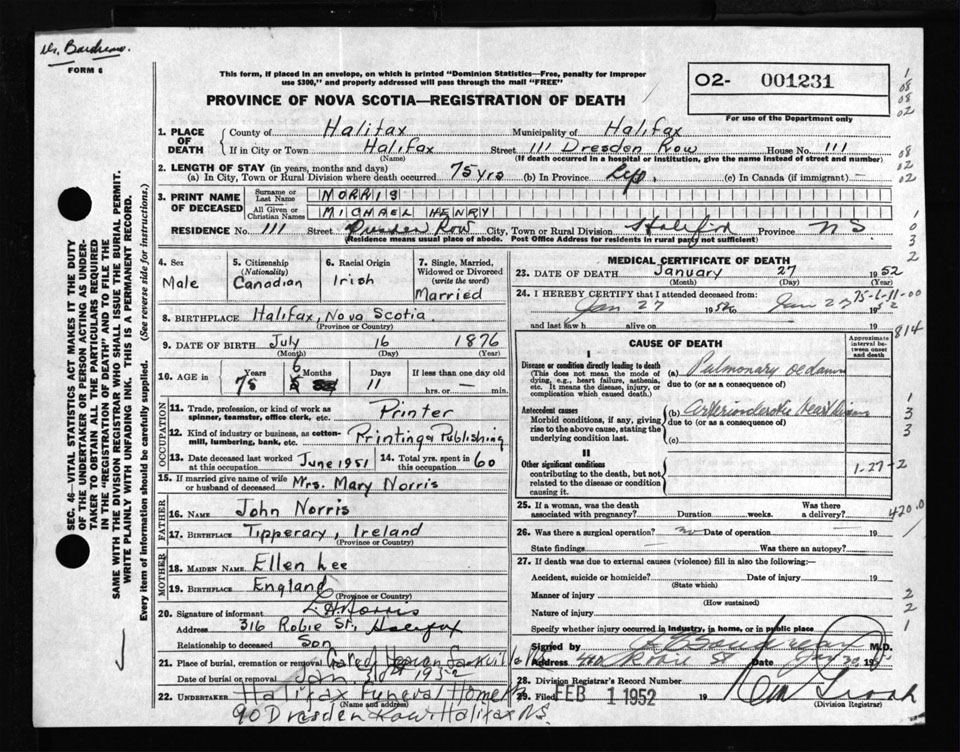 Dr.
FORM 6
This form, if placed in an envelope, on which is printed "Dominion Statistics—Free, penalty for improper
use $300," and properly addressed will pass through the mail "FREE"
PROVINCE OF NOVA SCOTIA—REGISTRATION OF DEATH
O2- 001231
For use of the Department only
1. PLACE OF DEATH County of Halifax Municipality of Halifax
If in City or Town Halifax Street 111 Dresden Row House No. 111
(Name) (If death occurred in a hospital or institution, give the name instead of street and number)
2. LENGTH OF STAY (in years, months and days)
(a) In City, Town or Rural Division where death occurred 75 yrs (b) In Province Life. (c) In Canada (if immigrant) —
3. PRINT NAME OF DECEASED Surname or Last Name MORRIS
All Given or Christian Names MICHAEL HENRY
RESIDENCE No. 111 Street Dresden Row City, Town or Rural Division Halifax Province NS
(Residence means usual place of abode. Post Office Address for residents in rural parts not sufficient)
4. Sex Male
5. Citizenship (Nationality) Canadian
6. Racial Origin Irish
7. Single, Married, Widowed or Divorced (write the word) Married
8. BIRTHPLACE Halifax, Nova Scotia
(Province or Country)
9. DATE OF BIRTH July 16 1876
(Month) (Day) (Year)
10. AGE in Years 75 Months 6 Days 11 If less than one day old
hrs. or — min.
OCCUPATION
11. Trade, profession, or kind of work as spinner, teamster, office clerk, etc. Printer
12. Kind of industry or business, as cotton-mill, lumbering, bank, etc. Printing & Publishing
13. Date deceased last worked at this occupation June 1951 14. Total yrs. spent in this occupation 60
15. If married give name of wife or husband of deceased Mrs. Mary Norris
FATHER
16. NAME John Norris
17. BIRTHPLACE Tipperary, Ireland
(Province or Country)
MOTHER
18. MAIDEN NAME Ellen Lee
19. BIRTHPLACE England
(Province or Country)
20. Signature of informant L. H. Norris
Address 316 Robie St., Halifax
Relationship to deceased Son
21. Place of burial, cremation or removal Gate of Heaven Sackville NS
Date of burial or removal Jan. 31st 1952
22. UNDERTAKER Halifax Funeral Home
(Name and address)
90 Dresden Row Halifax N.S.
MEDICAL CERTIFICATE OF DEATH
23. DATE OF DEATH January 27 1952
(Month) (Day)
24. I HEREBY CERTIFY that I attended deceased from: 75-6-11-00
Jan 27 1952 to Jan 27 1952
and last saw h alive on 19
814
CAUSE OF DEATH
Approximate interval between onset and death
I
Disease or condition directly leading to death
(This does not mean the mode of dying, e.g., heart failure, asthenia, etc. It means the disease, injury, or complication which caused death.)
(a) Pulmonary oedema
due to (or as a consequence of)
Antecedent causes
Morbid conditions, if any, giving rise to the above cause, stating the underlying condition last.
(b) Arteriosclerotic heart disease
due to (or as a consequence of)
(c)
II
Other significant conditions
contributing to the death, but not related to the disease or condition causing it.
1-27-2
25. If a woman, was the death associated with pregnancy? Duration weeks. Was there a delivery?
420.0
26. Was there a surgical operation? no Date of operation — 19
State findings Was there an autopsy?
27. If death was due to external causes (violence) fill in also the following:—
Accident, suicide or homicide? Date of injury 19
(State which)
Manner of injury
(How sustained)
Nature of injury
Specify whether injury occurred in industry, in home, or in public place
Signed by M.D.
Address Robie St Date Jan 19
28. Division Registrar's Record Number
29. Filed FEB 1 1952 19
(Division Registrar)
SEC. 46—VITAL STATISTICS ACT MAKES IT THE DUTY
OF THE UNDERTAKER OR PERSON ACTING AS UNDER-
TAKER TO OBTAIN ALL THE PARTICULARS REQUIRED
IN THE "REGISTRATION OF DEATH" AND TO FILE THE
SAME WITH THE DIVISION REGISTRAR WHO SHALL ISSUE THE BURIAL PERMIT.
WRITE PLAINLY WITH UNFADING INK. THIS IS A PERMANENT RECORD.
Every item of information should be carefully supplied. (See reverse side for instructions.)
1
08
08
02
08
02
02
1
0
3
2
1
3
3
2
2
1